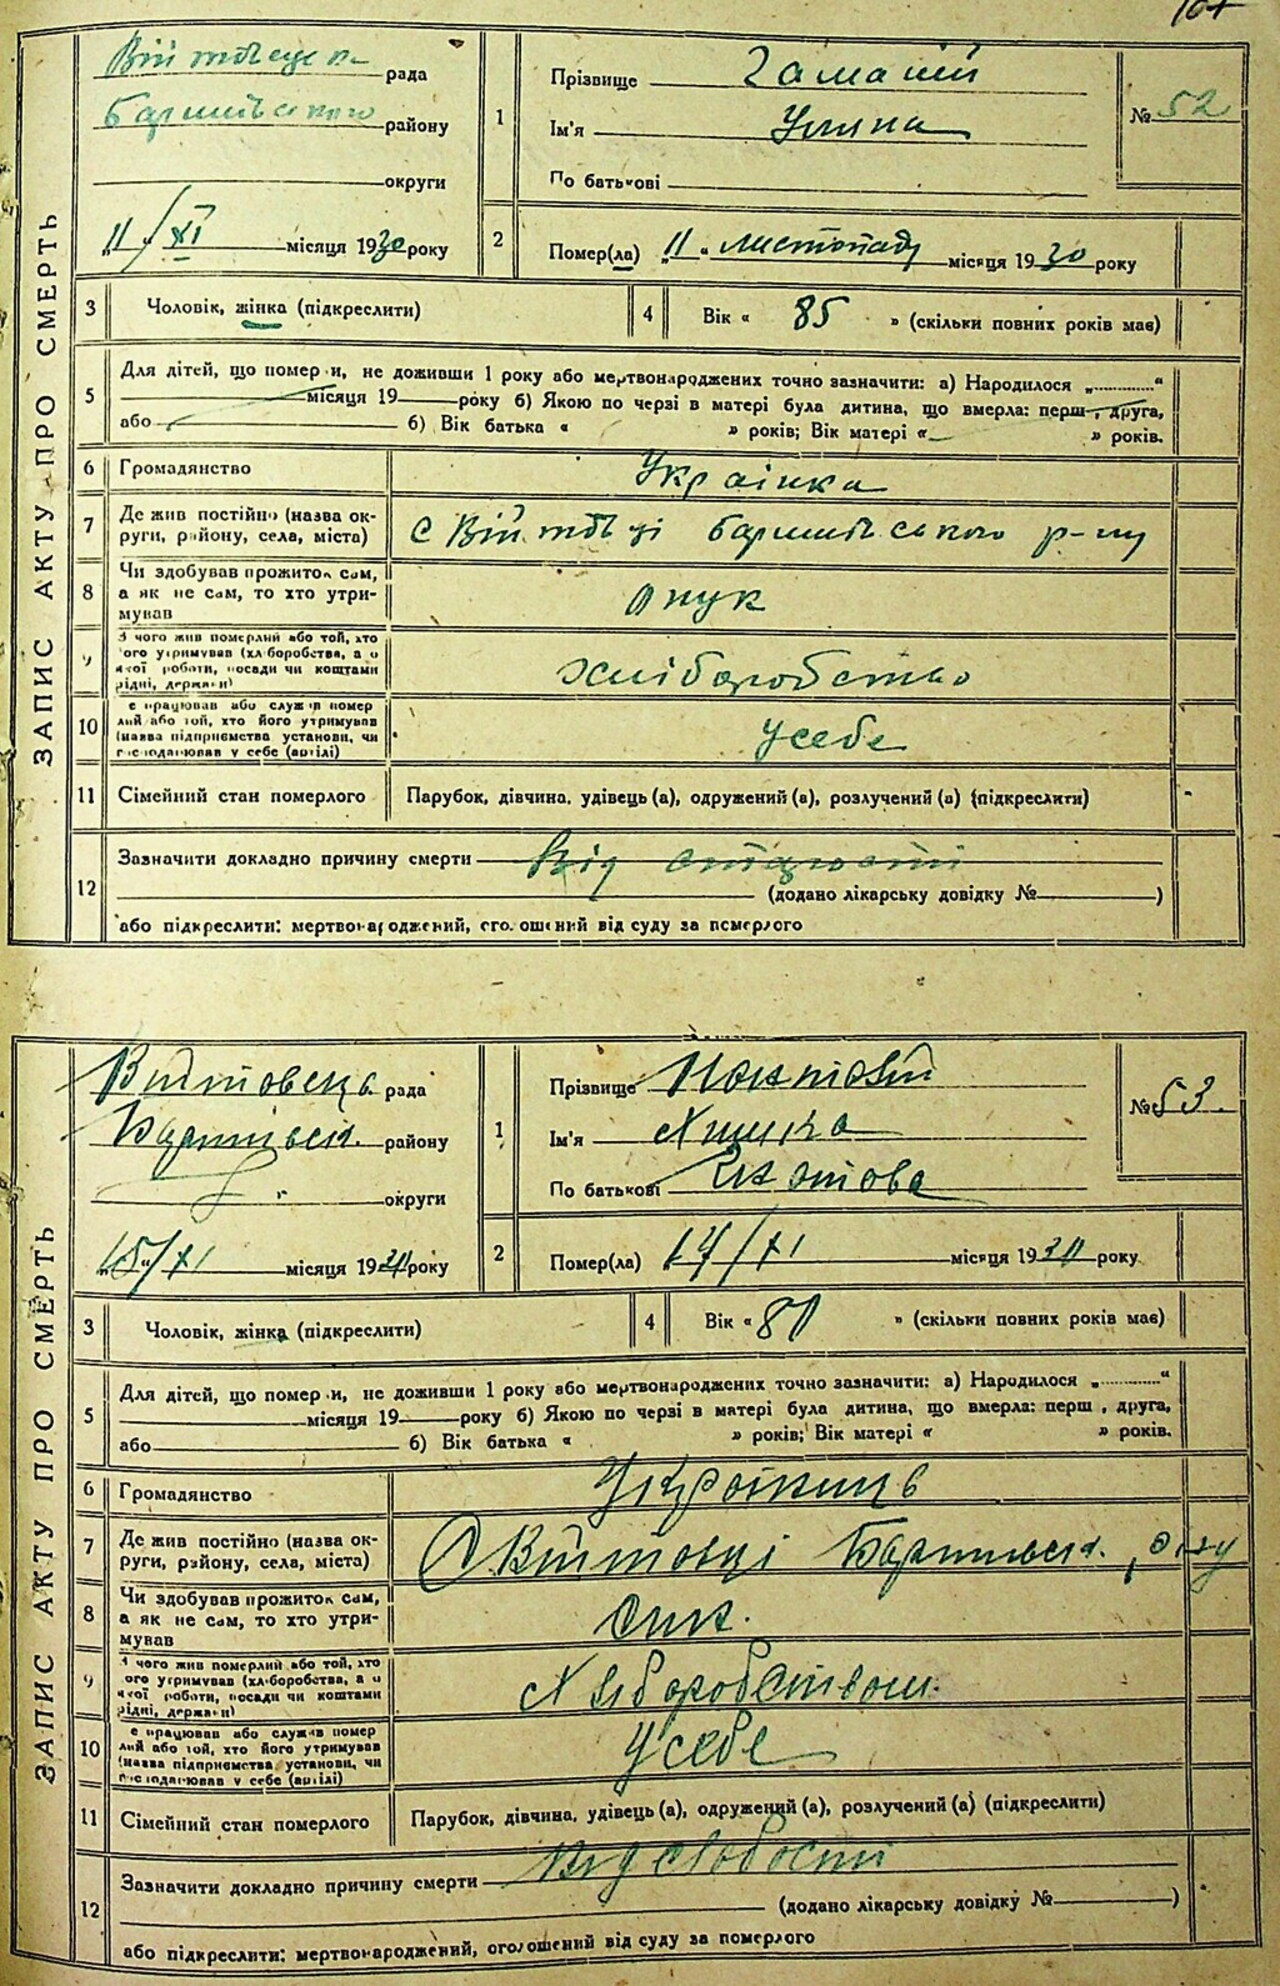 Війтовецька рада
Баришівського району
округи
„11“/XI місяця 1930 року
1
Прізвище Гамалій
Ім'я Уляна
По батькові
№ 52
2
Помер(ла) „11“ листопаду місяця 1930 року
ЗАПИС АКТУ ПРО СМЕРТЬ
3 Чоловік, жінка (підкреслити)
4 Вік « 85 » (скільки повних років має)
5 Для дітей, що помер и, не доживши 1 року або мертвонароджених точно зазначити: а) Народилося „............“
місяця 19 року б) Якою по черзі в матері була дитина, що вмерла: перш , друга,
або б) Вік батька « » років; Вік матері « » років.
6 Громадянство Українка
7 Де жив постійно (назва ок-
руги, району, села, міста) с Війтовці Баришівського р-ну
8 Чи здобував прожиток сам,
а як не сам, то хто утри-
мував онук
9 З чого жив померлий або той, хто
ого утримував (хліборобства, а о
якої роботи, посади чи коштами
рідні, держави) хліборобство
10 е працював або служив помер
лий або той, хто його утримував
(назва підприємства установи, чи
господарював у себе (артілі) У себе
11 Сімейний стан померлого Парубок, дівчина, удівець (а), одружений (а), розлучений (а) (підкреслити)
12 Зазначити докладно причину смерти Від старости
(додано лікарську довідку № )
або підкреслити: мертвонароджений, оголошений від суду за померлого
Війтовецька рада
Баришівськ. району
округи
„15“/XI місяця 1930 року
1
Прізвище
Ім'я
По батькові
№ 53.
2
Помер(ла) 14/XI місяця 1930 року
ЗАПИС АКТУ ПРО СМЕРТЬ
3 Чоловік, жінка (підкреслити)
4 Вік « 80 » (скільки повних років має)
5 Для дітей, що помер и, не доживши 1 року або мертвонароджених точно зазначити: а) Народилося „............“
місяця 19 року б) Якою по черзі в матері була дитина, що вмерла: перш , друга,
або б) Вік батька « » років; Вік матері « » років.
6 Громадянство
7 Де жив постійно (назва ок-
руги, району, села, міста) С Війтовці Баришівськ. р-ну
8 Чи здобував прожиток сам,
а як не сам, то хто утри-
мував син.
9 З чого жив померлий або той, хто
ого утримував (хліборобства, а о
якої роботи, посади чи коштами
рідні, держави) Хліборобством
10 е працював або служив помер
лий або той, хто його утримував
(назва підприємства установи, чи
господарював у себе (артілі) У себе
11 Сімейний стан померлого Парубок, дівчина, удівець (а), одружений (а), розлучений (а) (підкреслити)
12 Зазначити докладно причину смерти Від слабости
(додано лікарську довідку № )
або підкреслити: мертвонароджений, оголошений від суду за померлого